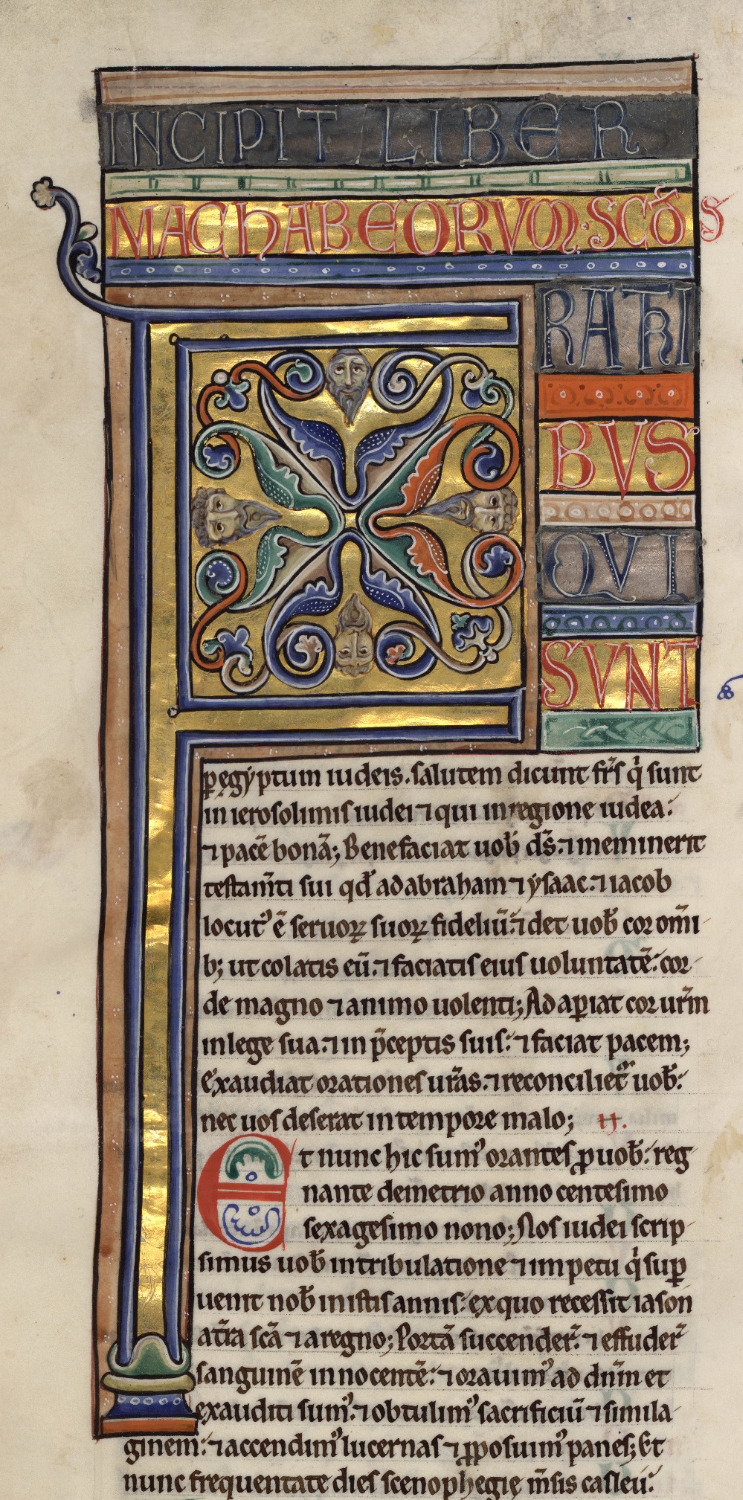 INCIPIT LIBER
MACHABEORVM·SCD̄S
F
RATRI
BVS
QVI
SVNT
p ęgẏptum iudeis. salutem dicunt fr̄s q̇ sunt
in ierosolimis iudei ⁊ qui in regione iudea:
⁊ pacē bonā; Benefaciat uob̄ dn̄s: ⁊ meminerit
testam̄ti sui qd̄ ad abraham ⁊ ẏsaac. ⁊ iacob
locut᾿ ē seruoꝝ suoꝝ fideliū: ⁊ det uob̄ cor om̄i-
b; ut colatis eū. ⁊ faciatis eius uoluntatē: cor-
de magno ⁊ animo uolenti; Adaꝑiat cor ur̄m
in lege sua: ⁊ in p̄ceptis suis: ⁊ faciat pacem;
Exaudiat orationes ur̄as: ⁊ reconciliet᷑ uob̄:
nec uos deserat in tempore malo; ıı.
Et nunc hic sum᾿ orantes ꝓ uob̄: reg
nante demetrio anno centesimo
sexagesimo nono; Nos iudei scrip-
simus uob̄ in tribulatione ⁊ impetu q̇ suꝑ
uenit nob̄ in istis annis: ex quo recessit iason
a t̄ra sc̄a ⁊ a regno; Portā succender̄: ⁊ effuder̄
sanguinē innocentē: ⁊ orauim᾿ ad dn̄m et
exauditi sum᾿: ⁊ obtulim᾿ sacrificiū ⁊ simila-
ginem: ⁊ accendim᾿ lucernas ⁊ ꝓposuim᾿ panes; Et
nunc frequentate dies scenophegię m̄sis casleu: